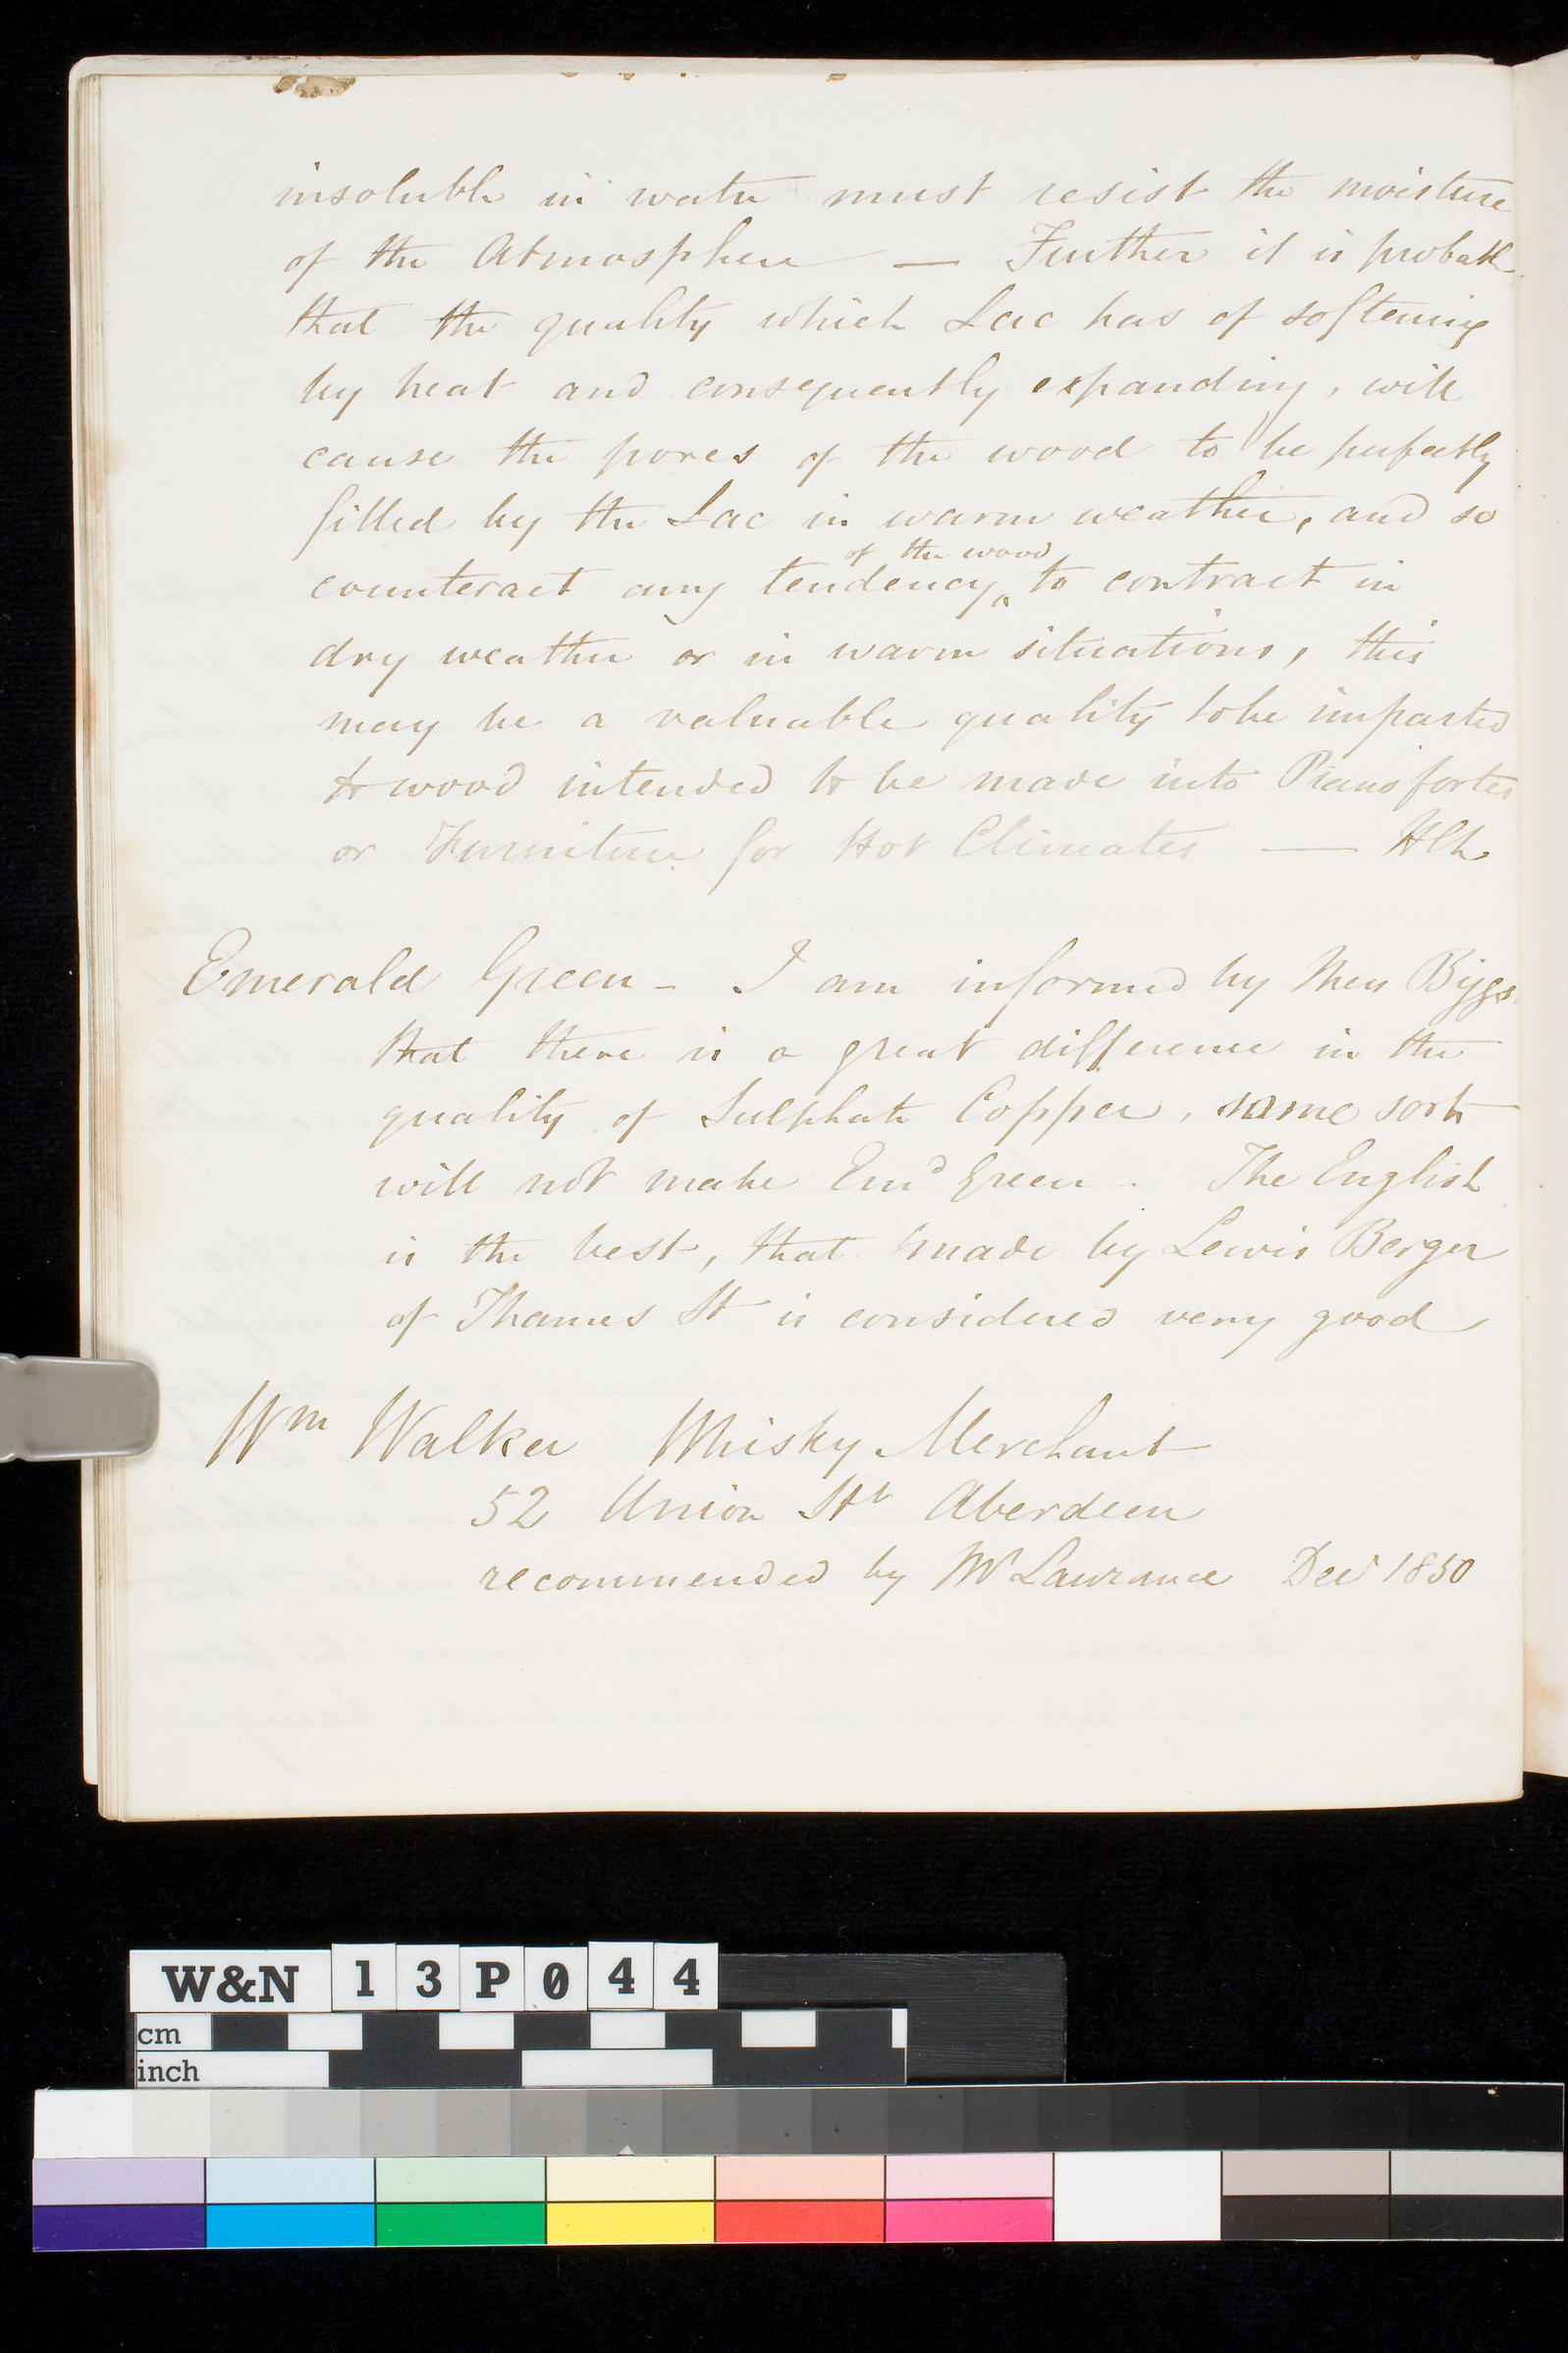 insoluble in water must resist the moisture
of the Atmosphere — Further it is probable
that the quality which Lac has of softening
by heat and consequently expanding, will
cause the pores of the wood to be perfectly
filled by the Lac in warm weather, and so
counteract any tendency of the wood to contract in
dry weather or in warm situations, this
may be a valuable quality to be imparted
to wood intended to be made into Piano fortes
or Furniture for Hot Climates —
Emerald Green - I am informed by Biggs
that there is a great difference in the
quality of Sulphate Copper, some sorts
will not make Emd Green - The English
is the best, that made by Lewis Berger
of Thames St is considered very good
Wm Walker Whisky Merchant
52 Union Stt Aberdeen
recommended by Mr Lawrance Decr 1850
W&N 13P044
cm
inch